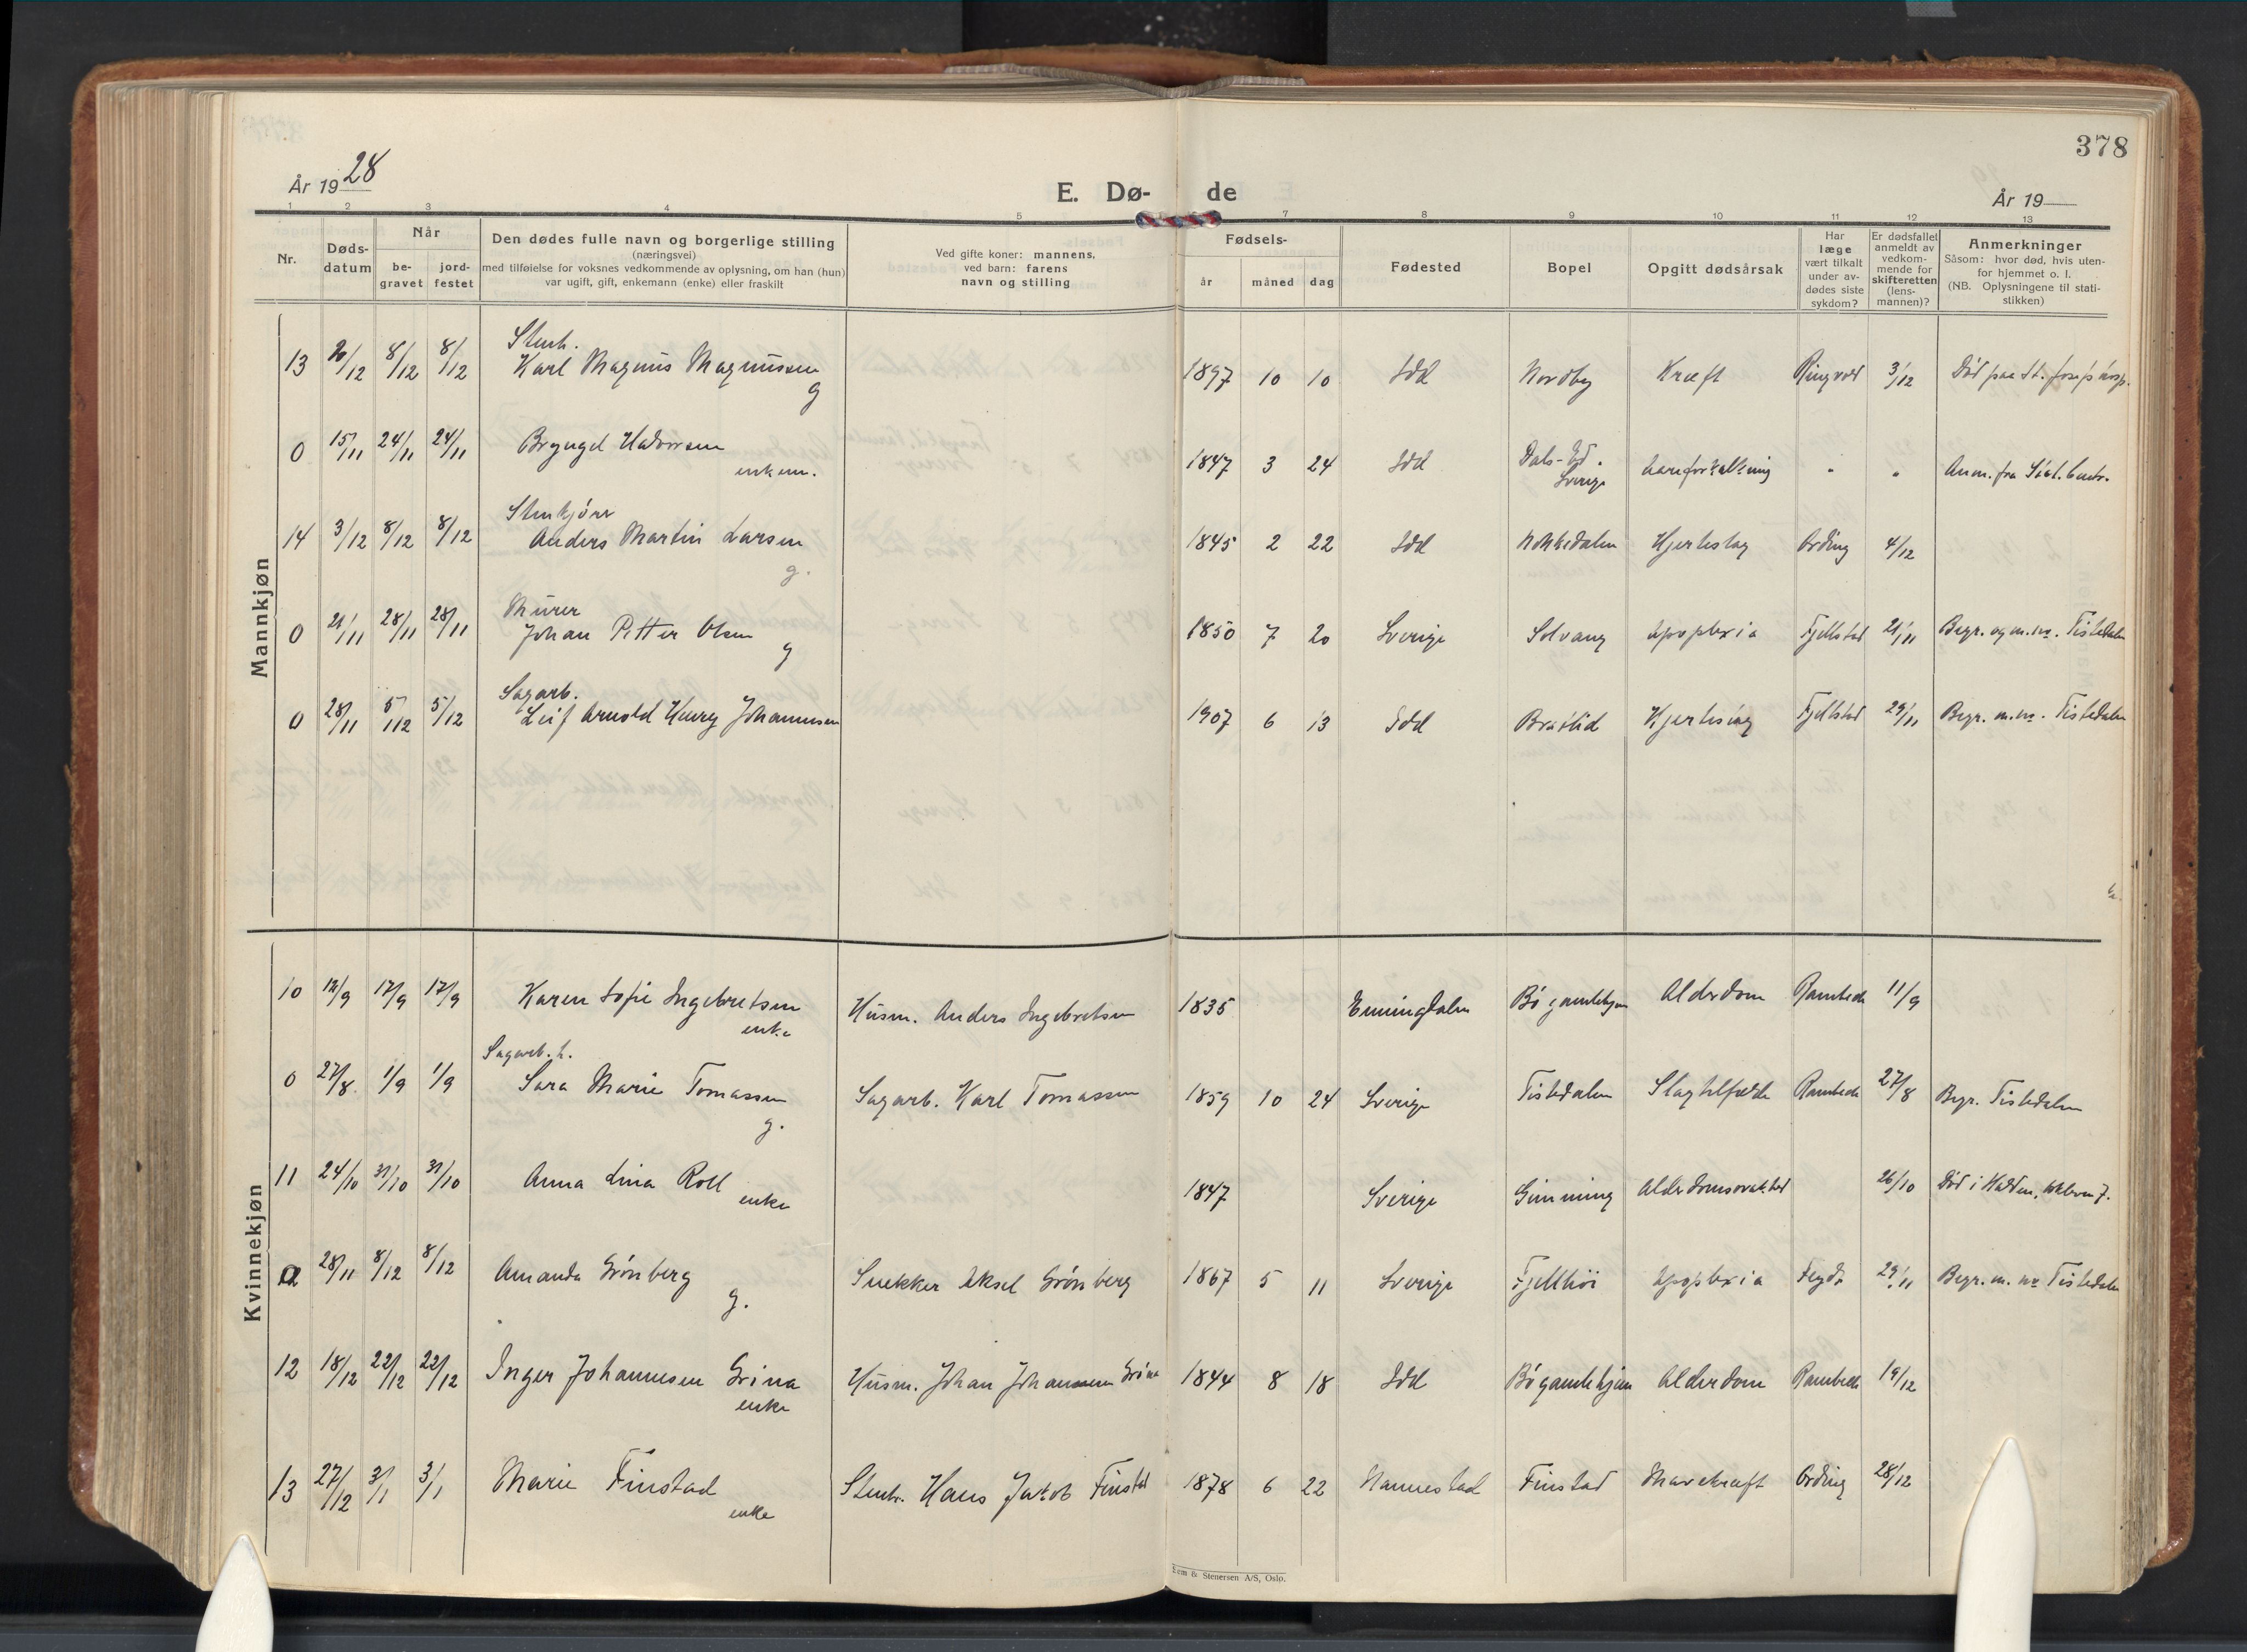 378
År 1928
E. Dø- de
År 19
1 2 3 4 5 7 8 9 10 11 12 13
Nr.
Døds-
datum
Når
be-
gravet
jord-
festet
Den dødes fulle navn og borgerlige stilling
(næringsvei)
med tilføielse for voksnes vedkommende av oplysning, om han (hun)
var ugift, gift, enkemann (enke) eller fraskilt
Ved gifte koner: mannens,
ved barn: farens
navn og stilling
Fødsels-
år måned dag
Fødested
Bopel
Opgitt dødsårsak
Har
læge
vært tilkalt
under av-
dødes siste
sykdom?
Er dødsfallet
anmeldt av
vedkom-
mende for
skifteretten
(lens-
mannen)?
Anmerkninger
Såsom: hvor død, hvis uten-
for hjemmet o. l.
(NB. Oplysningene til stati-
stikken)
Mannkjøn
Stenh.
13 /12 8/12 8/12 Karl Magnus Magnussen 1897 10 10 Idd Nordby Kræft Ringvold 3/12 Död paa St. Josefs hosp.
g
0 15/11 24/11 24/11 Bryngel Halvorsen 1847 3 24 Idd Dals-Ed. Aareforkalkning " "
enkem. Sverige
Stenkjörer
14 3/12 8/12 8/12 Anders Martin Larsen 1845 2 22 Idd Hjerteslag Ording 4/12
g.
Murer
0 21/11 28/11 28/11 Johan Petter Olsen 1850 7 20 Sverige Solvang Apoplexia Fjellstad 21/11 Tistedalen
g
Sagarb.
0 28/11 5/12 5/12 Leif Arnold Henry Johannesen 1907 6 13 Idd Bratlid Fjellstad 29/11 Begr. Tistedalen
Kvinnekjøn
10 /9 17/9 17/9 Karen Sofie Ingebretsen Husm. Anders Ingebretsen 1835 Enningdalen Alderdom Rambech 11/9
enke
Sagarb. h.
0 27/8. 1/9 1/9 Sara Marie Tomassen Sagarb. Karl Tomassen 1859 10 24 Sverige Tistedalen Slagtilfælde Rambech 27/8 Begr. Tistedalen
g.
11 24/10 31/10 31/10 Anna Lina Roll 1847 Sverige Gimming Alderdomssvakhed 26/10 Död i Halden,
enke
0 28/11 8/12 8/12 Amanda Grönberg Snekker Aksel Grönberg 1867 5 11 Sverige Fjellhöi Apoplexia 29/11 Begr. Tistedalen
g.
12 18/12 22/12 22/12 Inger Johannesen Grina Husm. Johan Johannesen 1844 8 18 Idd Bö gamlehjem Alderdom Rambech 19/12
enke
13 27/12 3/1 3/1 Marie Finstad Stenh. Hans Jakob Finstad 1878 6 22 Finstad Mavekræft Ording 28/12
enke
& Stenersen A/S, Oslo.